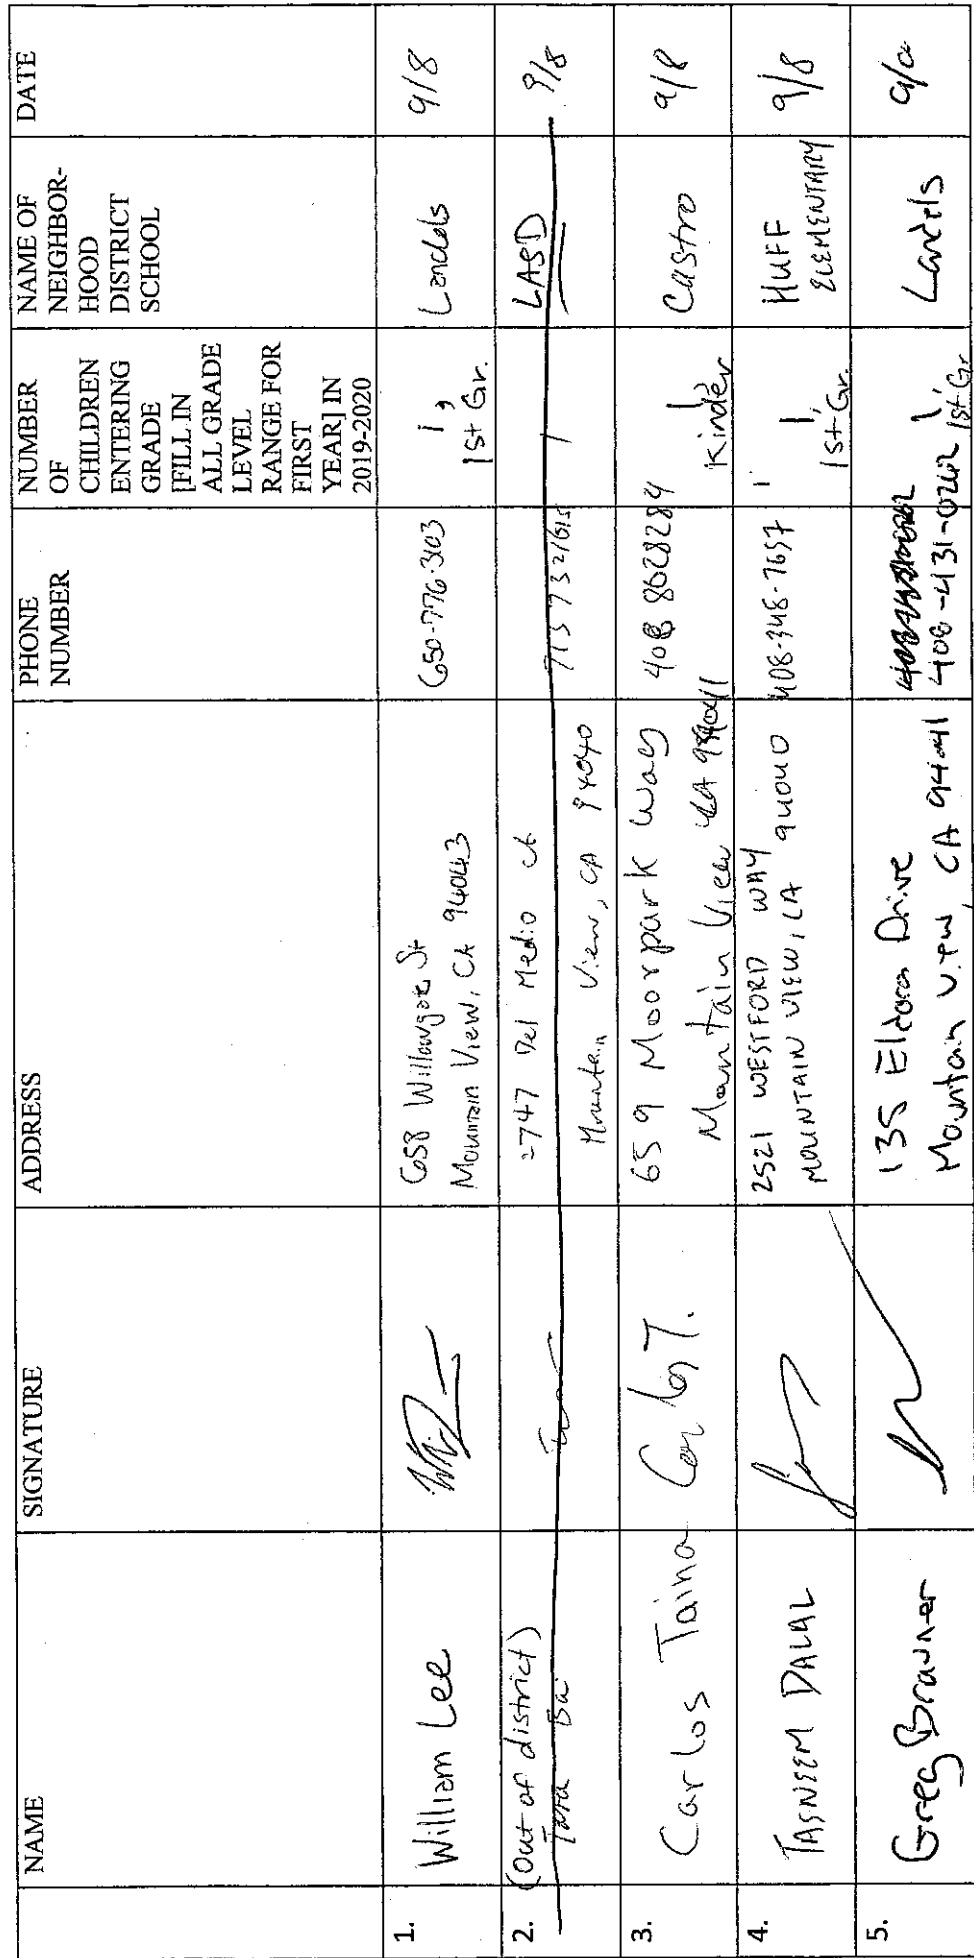 NAME
SIGNATURE
ADDRESS
PHONE
NUMBER
NUMBER
OF
CHILDREN
ENTERING
GRADE
[FILL IN
ALL GRADE
LEVEL
RANGE FOR
FIRST
YEAR] IN
2019-2020
NAME OF
NEIGHBOR-
HOOD
DISTRICT
SCHOOL
DATE
1.
William Lee
658 Willowgate St
Mountain View, CA 94043
650-776-3103
1,
1st Gr.
Landels
9/8
2.
(Out of district)
Tara Bai
2747 Del Medio ct
Mountain View, CA 94040
1
LASD
9/8
3.
Carlos Taina
Carlos T.
659 Moorpark Way
Mountain View CA 94041
408 8628284
1
Kinder
Castro
9/8
4.
TASNEEM DALAL
2521 WESTFORD WAY
MOUNTAIN VIEW, CA 94040
408-348-7657
1,
1st Gr.
HUFF
ELEMENTARY
9/8
5.
Greg Brauner
135 Eldora Drive
Mountain View, CA 94041
408-431-0202
1,
1st Gr
Landels